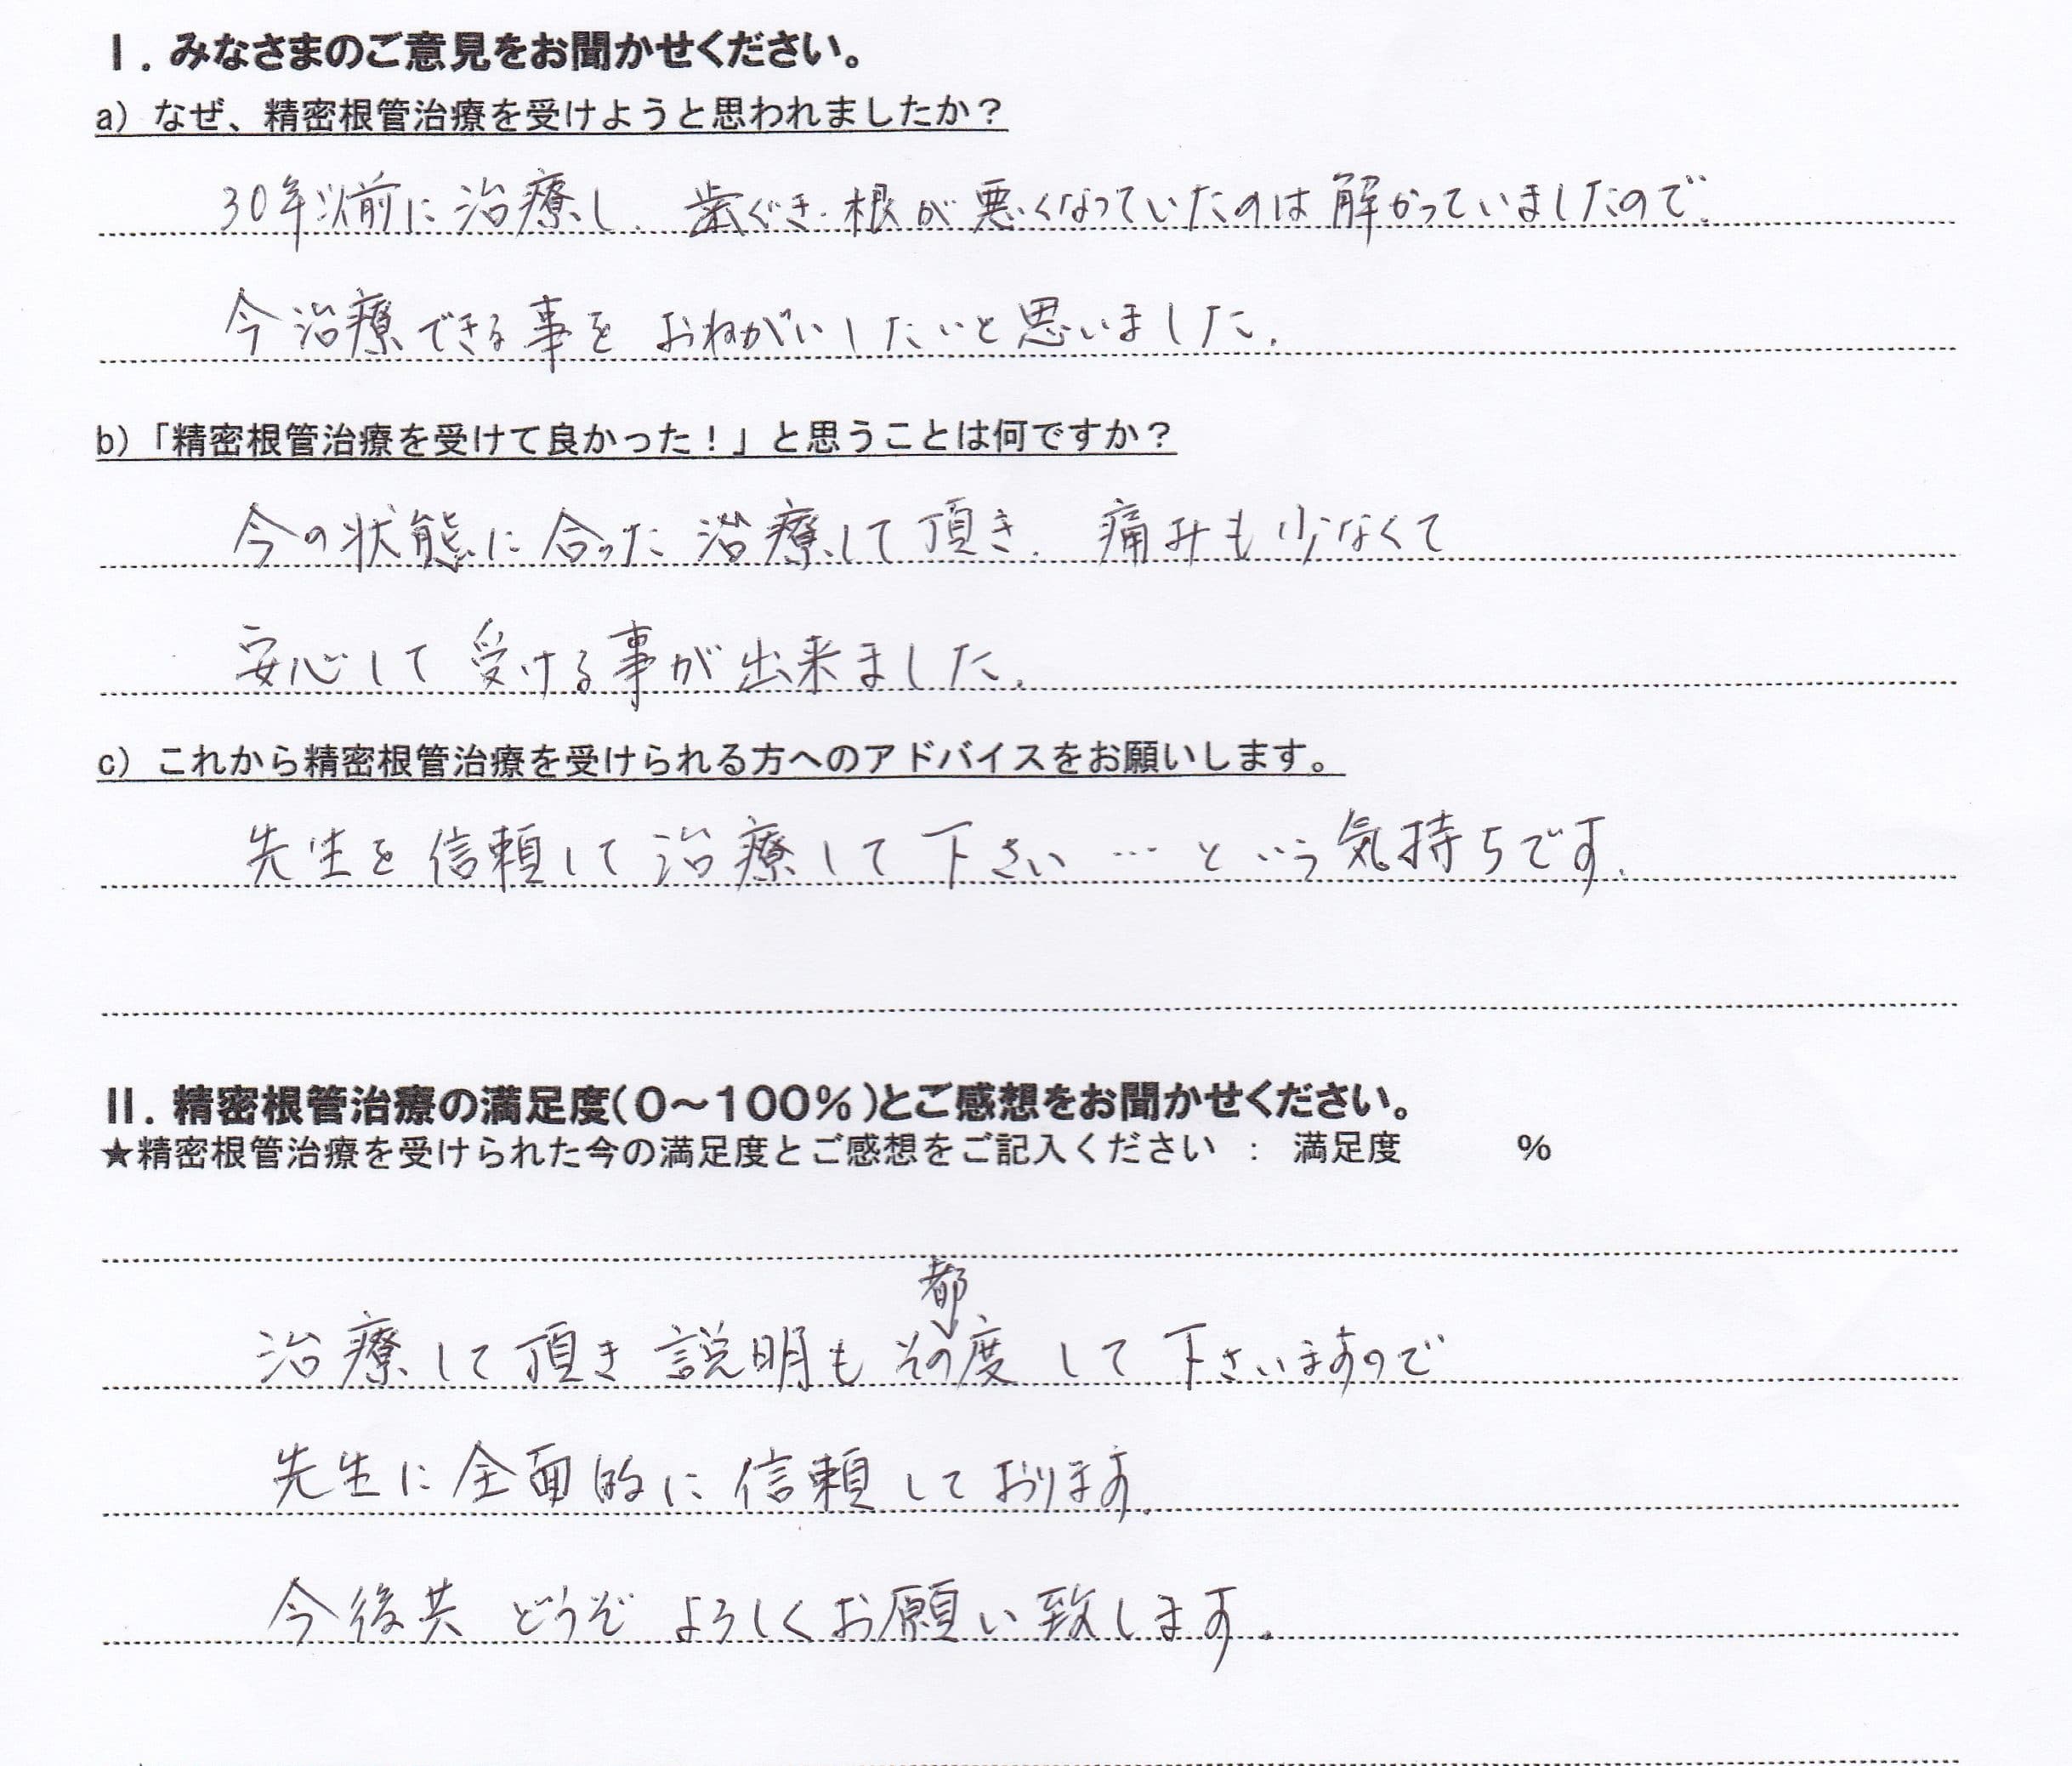 I. みなさまのご意見をお聞かせください。
a) なぜ、精密根管治療を受けようと思われましたか？
30年以前に治療し、歯ぐき・根が悪くなっていたのは解かっていましたので、
今治療できる事をおねがいしたいと思いました。
b)「精密根管治療を受けて良かった！」と思うことは何ですか？
今の状態に合った治療して頂き、痛みも少なくて
安心して受ける事が出来ました。
c) これから精密根管治療を受けられる方へのアドバイスをお願いします。
先生を信頼して治療して下さい…という気持ちです。
II. 精密根管治療の満足度(0～100%)とご感想をお聞かせください。
★精密根管治療を受けられた今の満足度とご感想をご記入ください ： 満足度 %
都
治療して頂き説明もその度して下さいますので
先生に全面的に信頼しております。
今後共どうぞよろしくお願い致します。